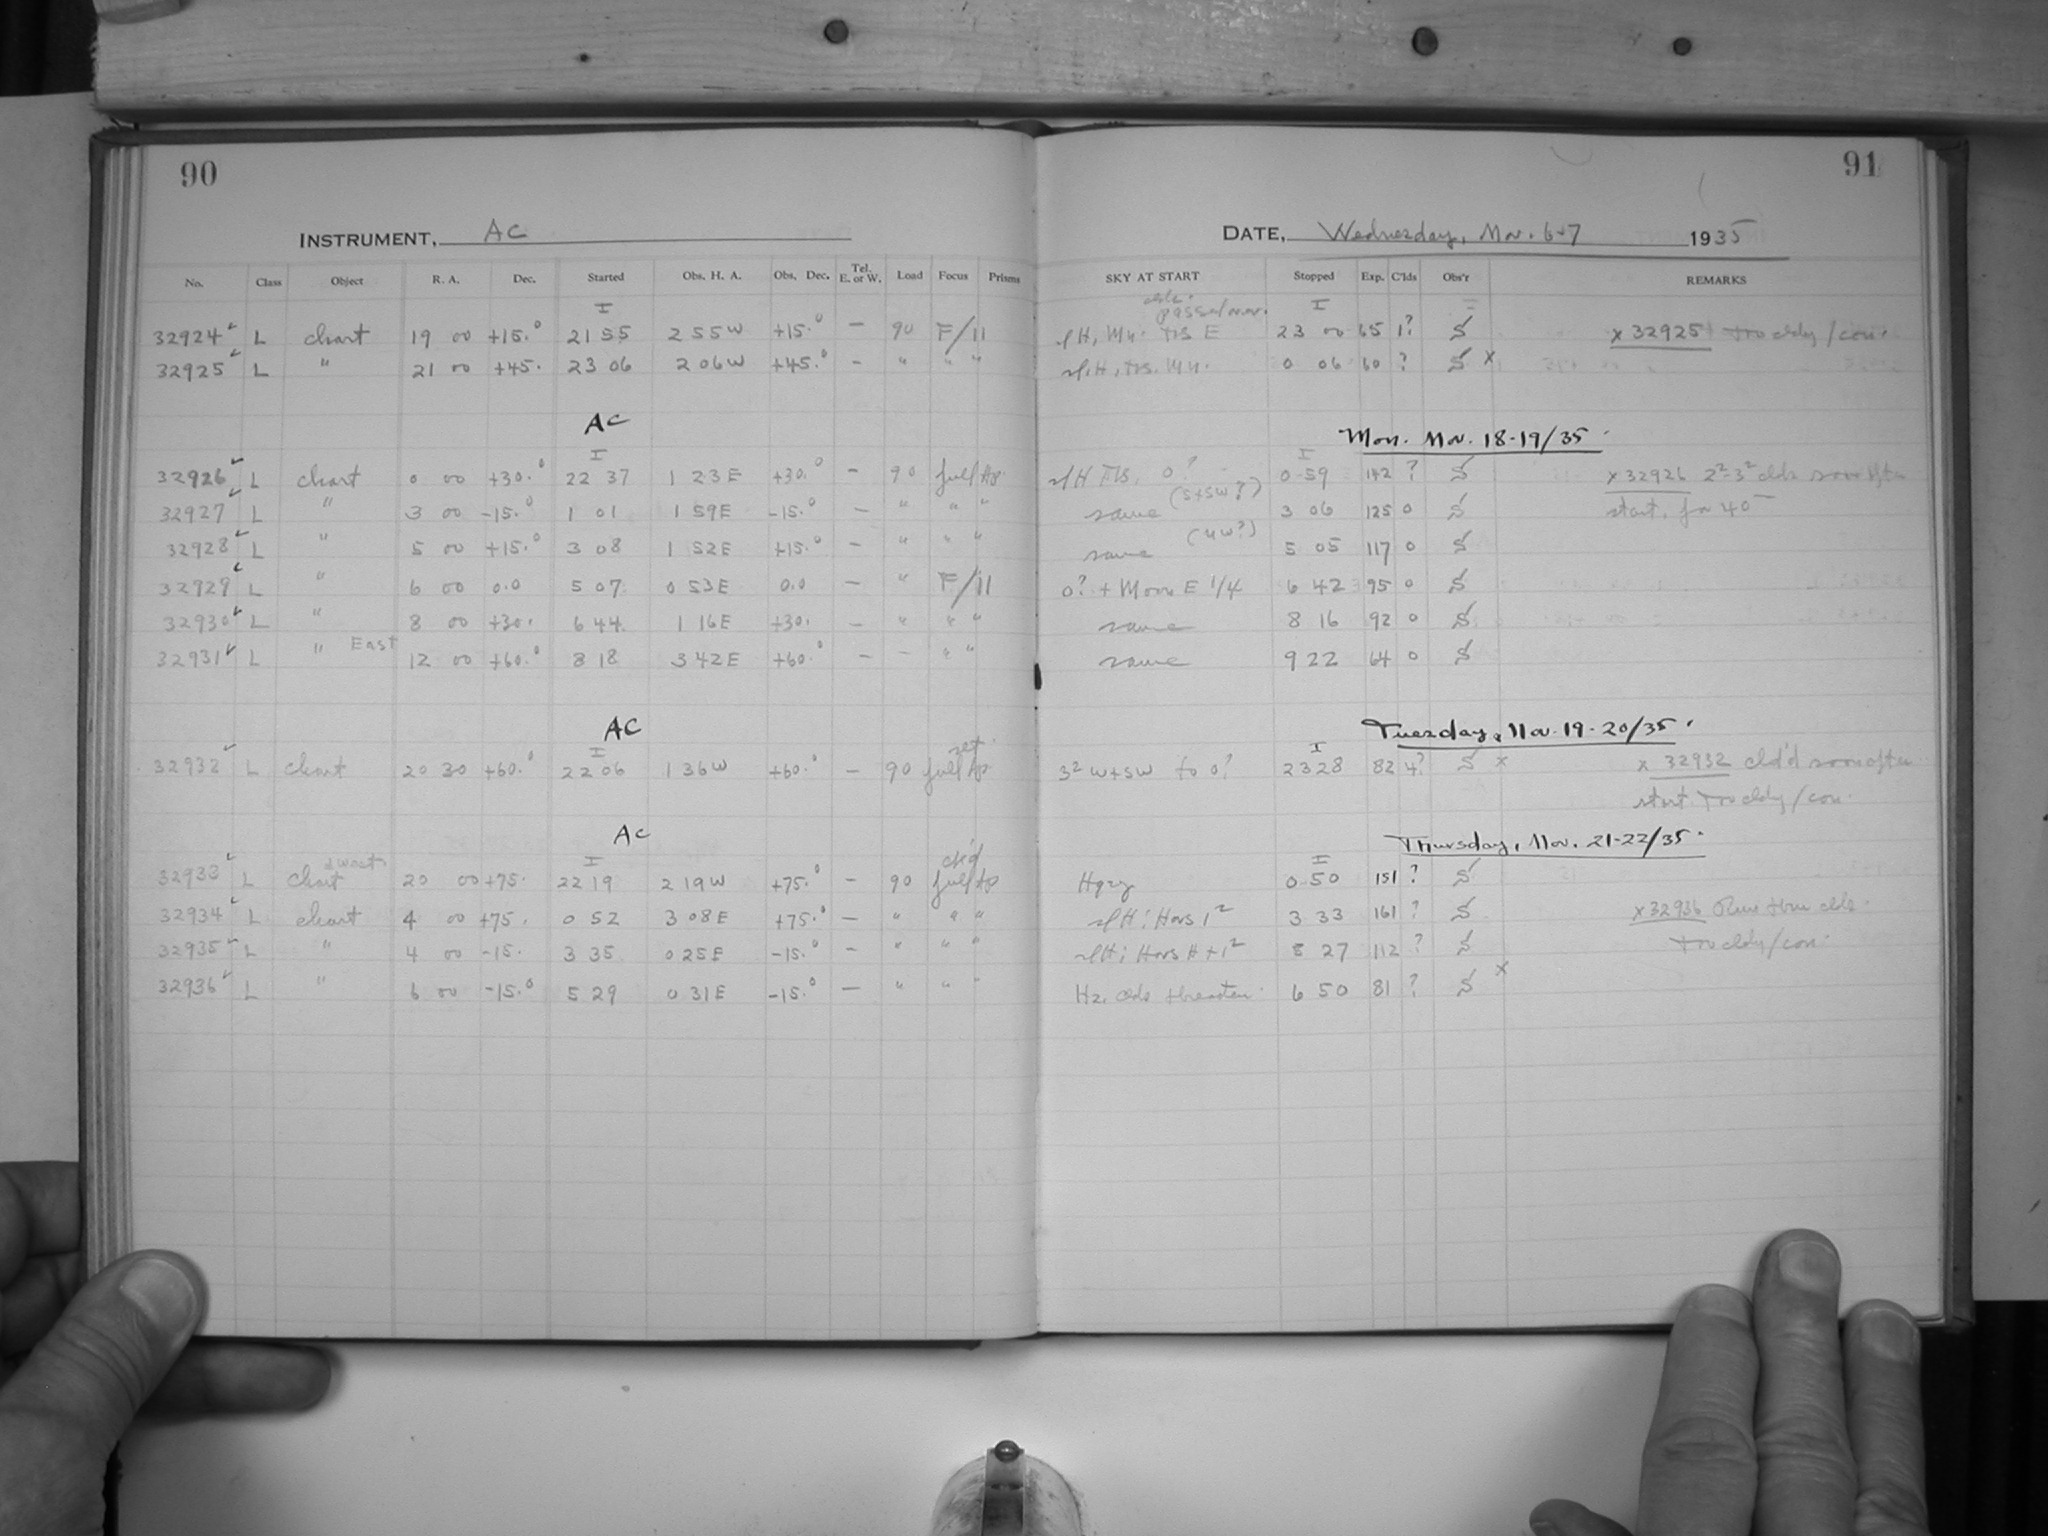 90
INSTRUMENT, AC
No. Class Object R. A. Dec. Started Obs. H. A. Obs. Dec. Tel. E. or W. Load Focus Prisms
I
32924 L chart 19 00 +15.° 21 55 2 55W +15.° — 90 F/11
32925 L " 21 00 +45. 23 06 2 06W +45.° — " " "
AC
I
32926 L chart 0 00 +30.° 22 37 1 23E +30.° — 90 full Ap.
32927 L " 3 00 -15.° 1 01 1 59E -15.° — " " "
32928 L " 5 00 +15.° 3 08 1 52E +15.° — " " "
32929 L " 6 00 0.0 5 07 0 53E 0.0 — " F/11
32930 L " 8 00 +30. 6 44 1 16E +30. — " " "
32931 L " East 12 00 +60.° 8 18 3 42E +60.° — — " "
AC
I
32932 L chart 20 30 +60.° 22 06 1 36W +60.° — 90 full Ap
AC
I ck'd
32933 L chart 20 00 +75. 22 19 2 19W +75.° — 90 full Ap
32934 L chart 4 00 +75. 0 52 3 08E +75.° — " " "
32935 L " 4 00 -15. 3 35 0 25E -15.° — " " "
32936 L " 6 00 -15.° 5 29 0 31E -15.° — " " "
91
DATE, Wednesday, Nov. 6+7 1935
SKY AT START Stopped Exp. C'lds Obs'r REMARKS
I
slH, Mn. TlS E 23 00 65 1? S x 32925 Too cldy/con.
slH, tls. Mn. 0 06 60 ? S x
Mon. Nov. 18-19/35.
I
slH TlS, 0? 0 59 142 ? S x 32926 2²-3² clds soon after
(S+SW?)
same 3 06 125 0 S start, for 40
(NW?)
same 5 05 117 0 S
0? + Moon E 1/4 6 42 95 0 S
same 8 16 92 0 S
same 9 22 64 0 S
Tuesday, Nov. 19-20/35.
I
3² W+SW to 0? 23 28 82 4? S x x 32932 cld'd soon after
start Too cldy/con.
Thursday, Nov. 21-22/35.
I
Hazy 0 50 151 ? S
slH; Hors 1² 3 33 161 ? S x 32936 Run thru clds.
slH; Hors H+1² 5 27 112 ? S Too cldy/con.
Hz, clds threaten. 6 50 81 ? S x